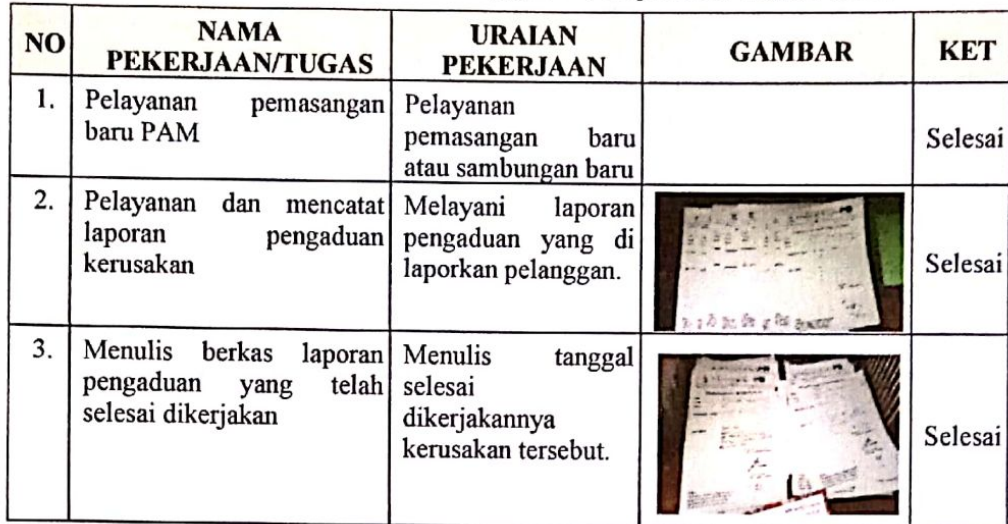 NO NAMA PEKERJAAN/TUGAS URAIAN PEKERJAAN GAMBAR KET
1. Pelayanan pemasangan baru PAM
Pelayanan
pemasangan baru
atau sambungan baru
Selesai
2. Pelayanan dan mencatat
laporan pengaduan
kerusakan
Melayani laporan
pengaduan yang di
laporkan pelanggan.
Selesai
3. Menulis berkas laporan
pengaduan yang telah
selesai dikerjakan
Menulis tanggal
selesai
dikerjakannya
kerusakan tersebut.
Selesai